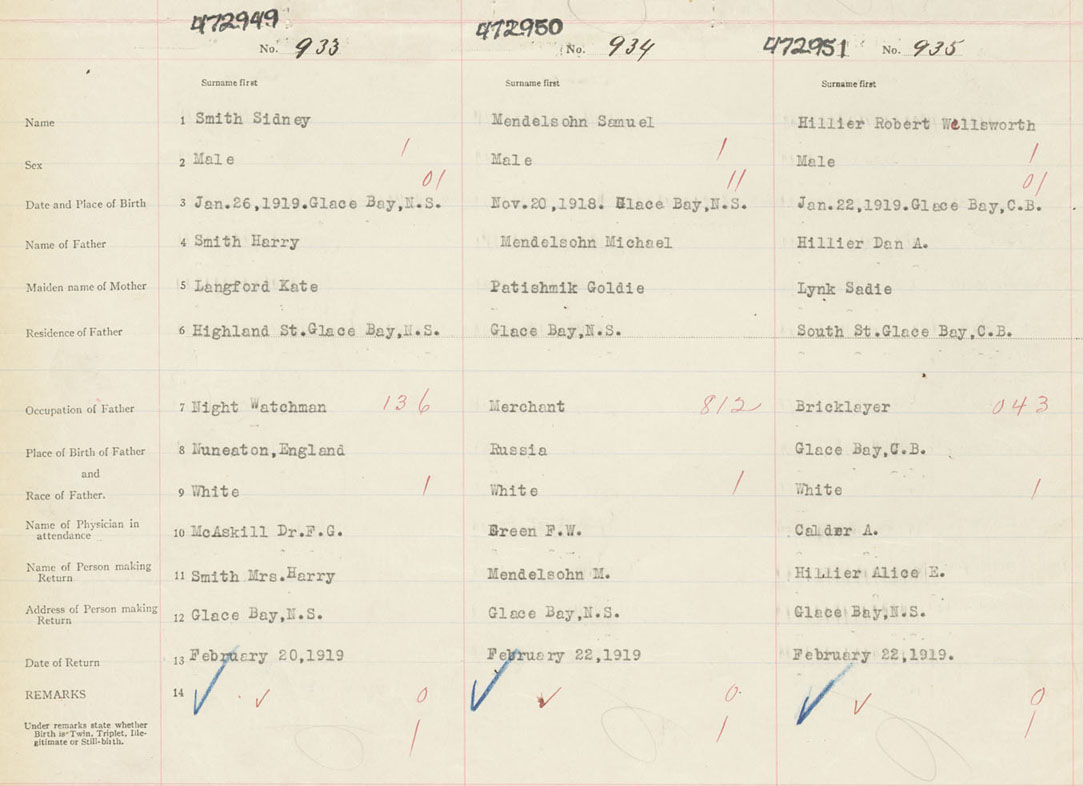 472949 472950 472951
No. 933 No. 934 No. 935
Surname first Surname first Surname first
Name 1 Smith Sidney Mendelsohn Samuel Hillier Robert Wellsworth
Sex 2 Male 1 Male 1 Male 1
01 11 01
Date and Place of Birth 3 Jan.26,1919.Glace Bay,N.S. Nov.20,1918. Glace Bay,N.S. Jan.22,1919.Glace Bay,C.B.
Name of Father 4 Smith Harry Mendelsohn Michael Hillier Dan A.
Maiden name of Mother 5 Langford Kate Patishmik Goldie Lynk Sadie
Residence of Father 6 Highland St.Glace Bay,N.S. Glace Bay,N.S. South St.Glace Bay,C.B.
Occupation of Father 7 Night Watchman 136 Merchant 812 Bricklayer 043
Place of Birth of Father 8 Nuneaton,England Russia Glace Bay,C.B.
and
Race of Father. 9 White 1 White 1 White 1
Name of Physician in
attendance 10 McAskill Dr.F.G. Green F.W. Calder A.
Name of Person making
Return 11 Smith Mrs.Harry Mendelsohn M. Hillier Alice E.
Address of Person making
Return 12 Glace Bay,N.S. Glace Bay,N.S. Glace Bay,N.S.
Date of Return 13 February 20,1919 February 22,1919 February 22,1919.
REMARKS 14 ✓ ✓ 0 ✓ ✓ 0 ✓ ✓ 0
Under remarks state whether 1 1 1
Birth is Twin, Triplet, Ille-
gitimate or Still-birth.